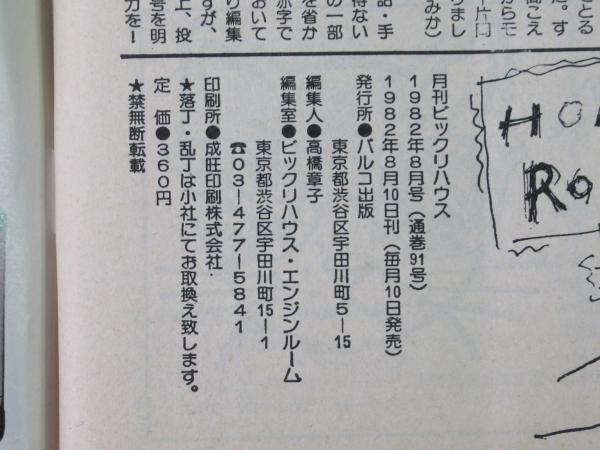 月刊ビックリハウス
1982年8月号(通巻91号)
1982年8月10日刊(毎月10日発売)
発行所●パルコ出版
東京都渋谷区宇田川町5—15
編集人●高橋章子
編集室●ビックリハウス・エンジンルーム
東京都渋谷区宇田川町15—1
☎03—477—5841
印刷所●成旺印刷株式会社
★落丁・乱丁は小社にてお取換え致します。
定 価●360円
★禁無断転載
HO
Ro
話・手
得ない
の一部
を省か
赤字で
おいて
り編集
すが、
上、投
号を明
力を!